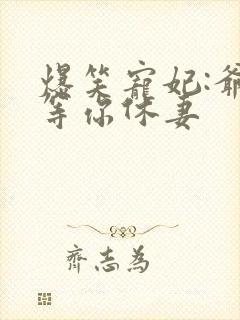 爆笑寵妃:爺
等你休妻
齊志為